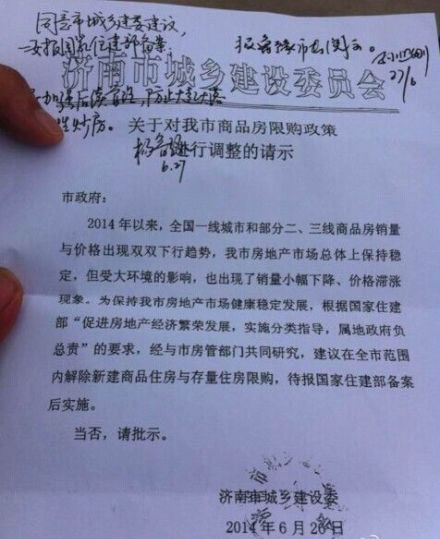 同意市城乡建委建议，
报鲁豫市长阅示。
济南市城乡建设委员会
27/6
关于对我市商品房限购政策
行调整的请示
6.27
市政府：
2014年以来，全国一线城市和部分二、三线商品房销量
与价格出现双双下行趋势，我市房地产市场总体上保持稳
定，但受大环境的影响，也出现了销量小幅下降、价格滞涨
现象。为保持我市房地产市场健康稳定发展，根据国家住建
部“促进房地产经济繁荣发展，实施分类指导，属地政府负
总责”的要求，经与市房管部门共同研究，建议在全市范围
内解除新建商品住房与存量住房限购，待报国家住建部备案
后实施。
当否，请批示。
济南市城乡建设委
2014年6月26日